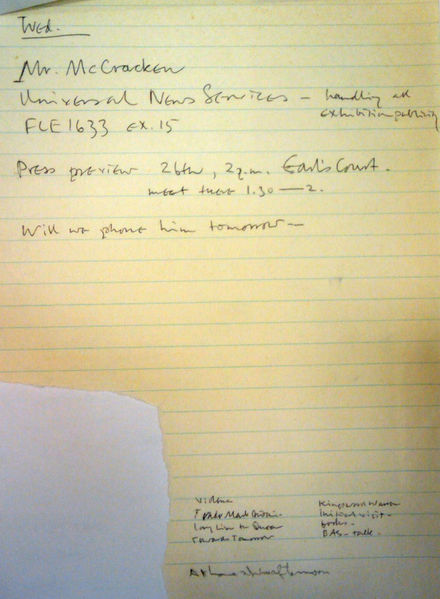 Wed.
Mr. McCracken
Universal News Services – handling all
exhibition publicity
FLE 1633 ex. 15
Press preview 26th, 2 p.m. Earls Court.
meet there 1.30 — 2.
Will we phone him tomorrow —
Trade Mark
Kingswood Warren
Initial visit –
Long Line to
books –
Towards Tomorrow
BAS – talk.